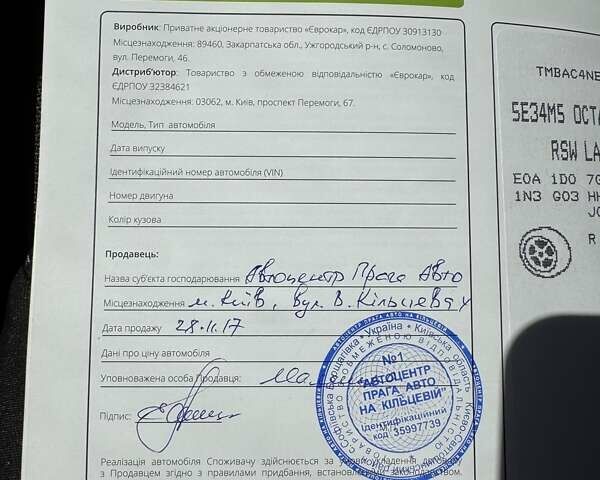 Виробник: Приватне акціонерне товариство «Єврокар», код ЄДРПОУ 30913130
Місцезнаходження: 89460, Закарпатська обл., Ужгородський р-н, с. Соломоново,
вул. Перемоги, 46.
Дистриб'ютор: Товариство з обмеженою відповідальністю «Єврокар», код
ЄДРПОУ 32384621
Місцезнаходження: 03062, м. Київ, проспект Перемоги, 67.
Модель, Тип автомобіля
Дата випуску
Ідентифікаційний номер автомобіля (VIN)
Номер двигуна
Колір кузова
Продавець:
Назва суб'єкта господарювання Автоцентр Прага Авто
Місцезнаходження м. Київ, вул. В. Кільцева
Дата продажу 28.11.17
Дані про ціну автомобіля
Уповноважена особа Продавця:
Підпис:
АВТОЦЕНТР ПРАГА АВТО НА КІЛЬЦЕВІЙ
Україна * Київська область
№1
"АВТОЦЕНТР
ПРАГА АВТО
НА КІЛЬЦЕВІЙ"
Ідентифікаційний
код 35997739
Реалізація автомобіля Споживачу здійснюється за
з Продавцем згідно з правилами придбання,
TMBAC4NE
5E34M5 OCTA
RSW LA
E0A 1D0 7G
1N3 G03 HH
J0
R